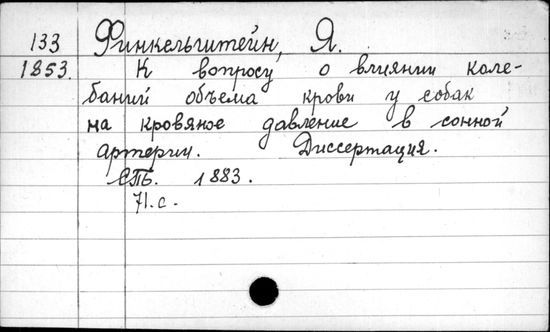 133 Финкельштейн, Я.
1853. К вопросу о влиянии коле-
баний объема крови у собак
на кровяное давление в сонной
артерии. Диссертация.
СПБ. 1883.
71.с.